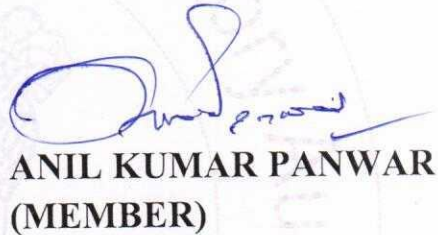 ANIL KUMAR PANWAR
(MEMBER)